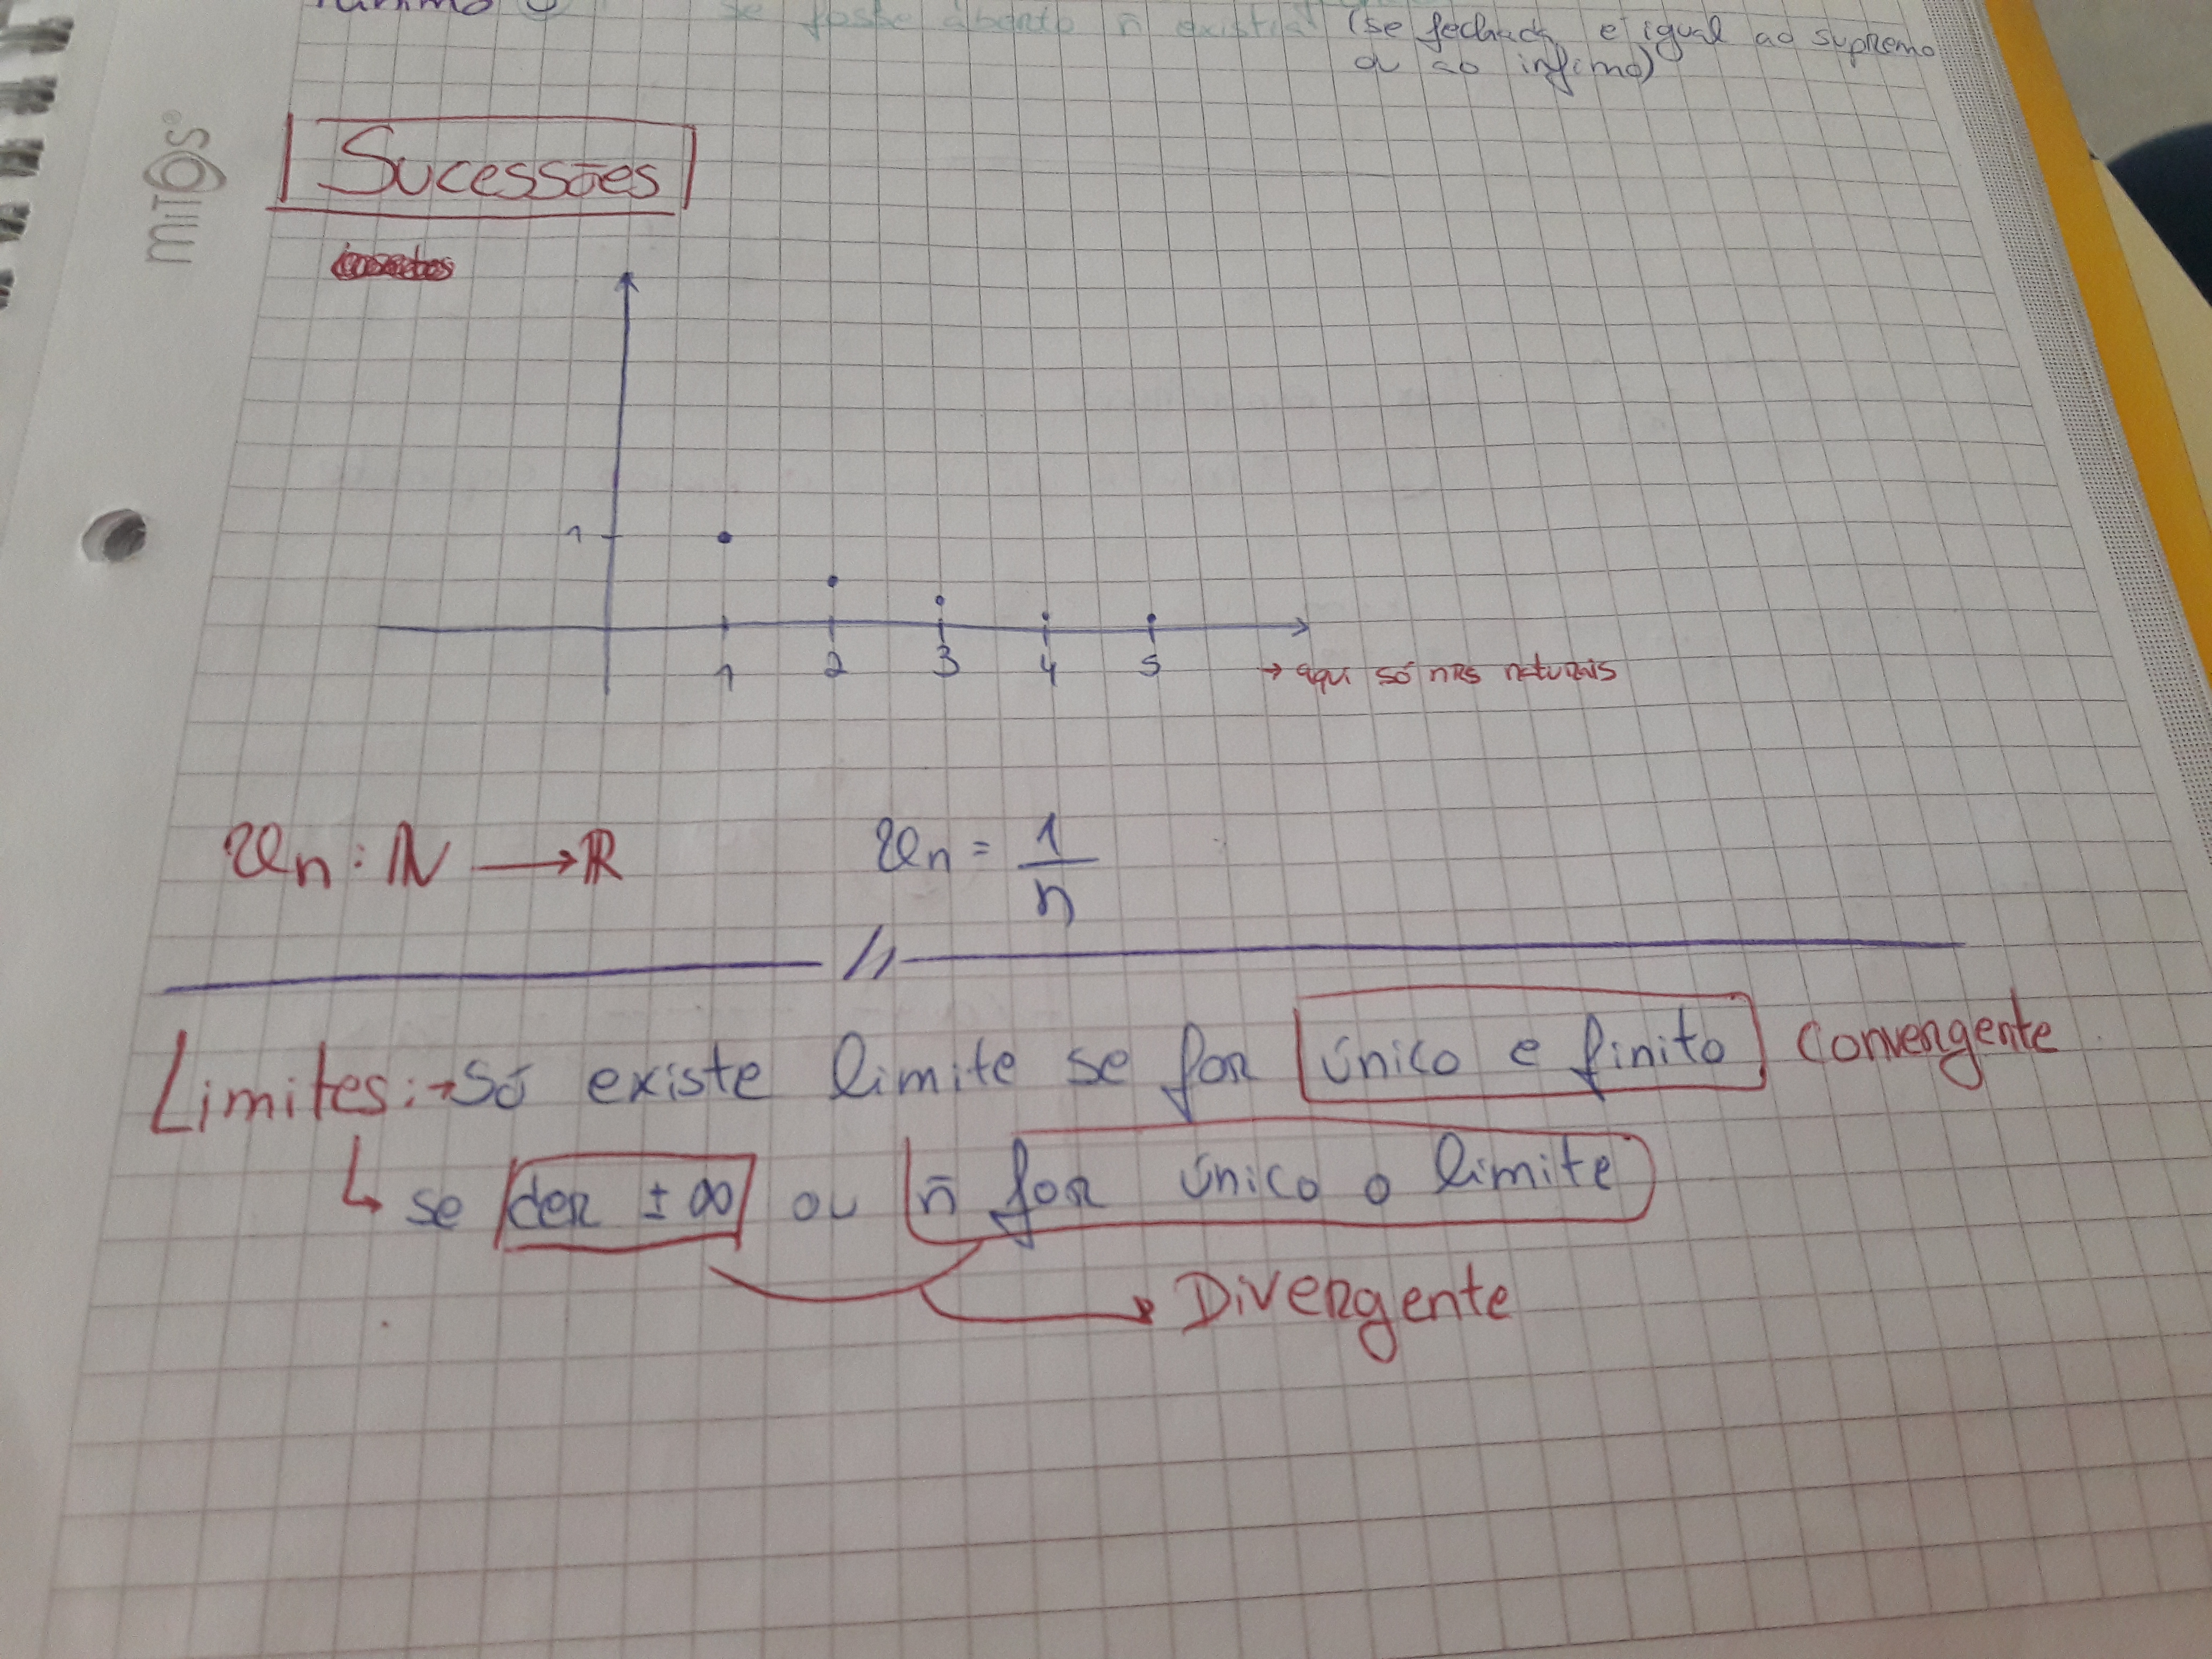 se fosse aberto ñ existia (se fechado, é igual ao supremo
ou ao ínfimo)
mitos
Sucessões
1
1 2 3 4 5
→ aqui só nrs naturais
un : ℕ → ℝ un = 1/n
Limites: → Só existe limite se for único e finito convergente
↳ se der ± ∞ ou ñ for único o limite
→ Divergente